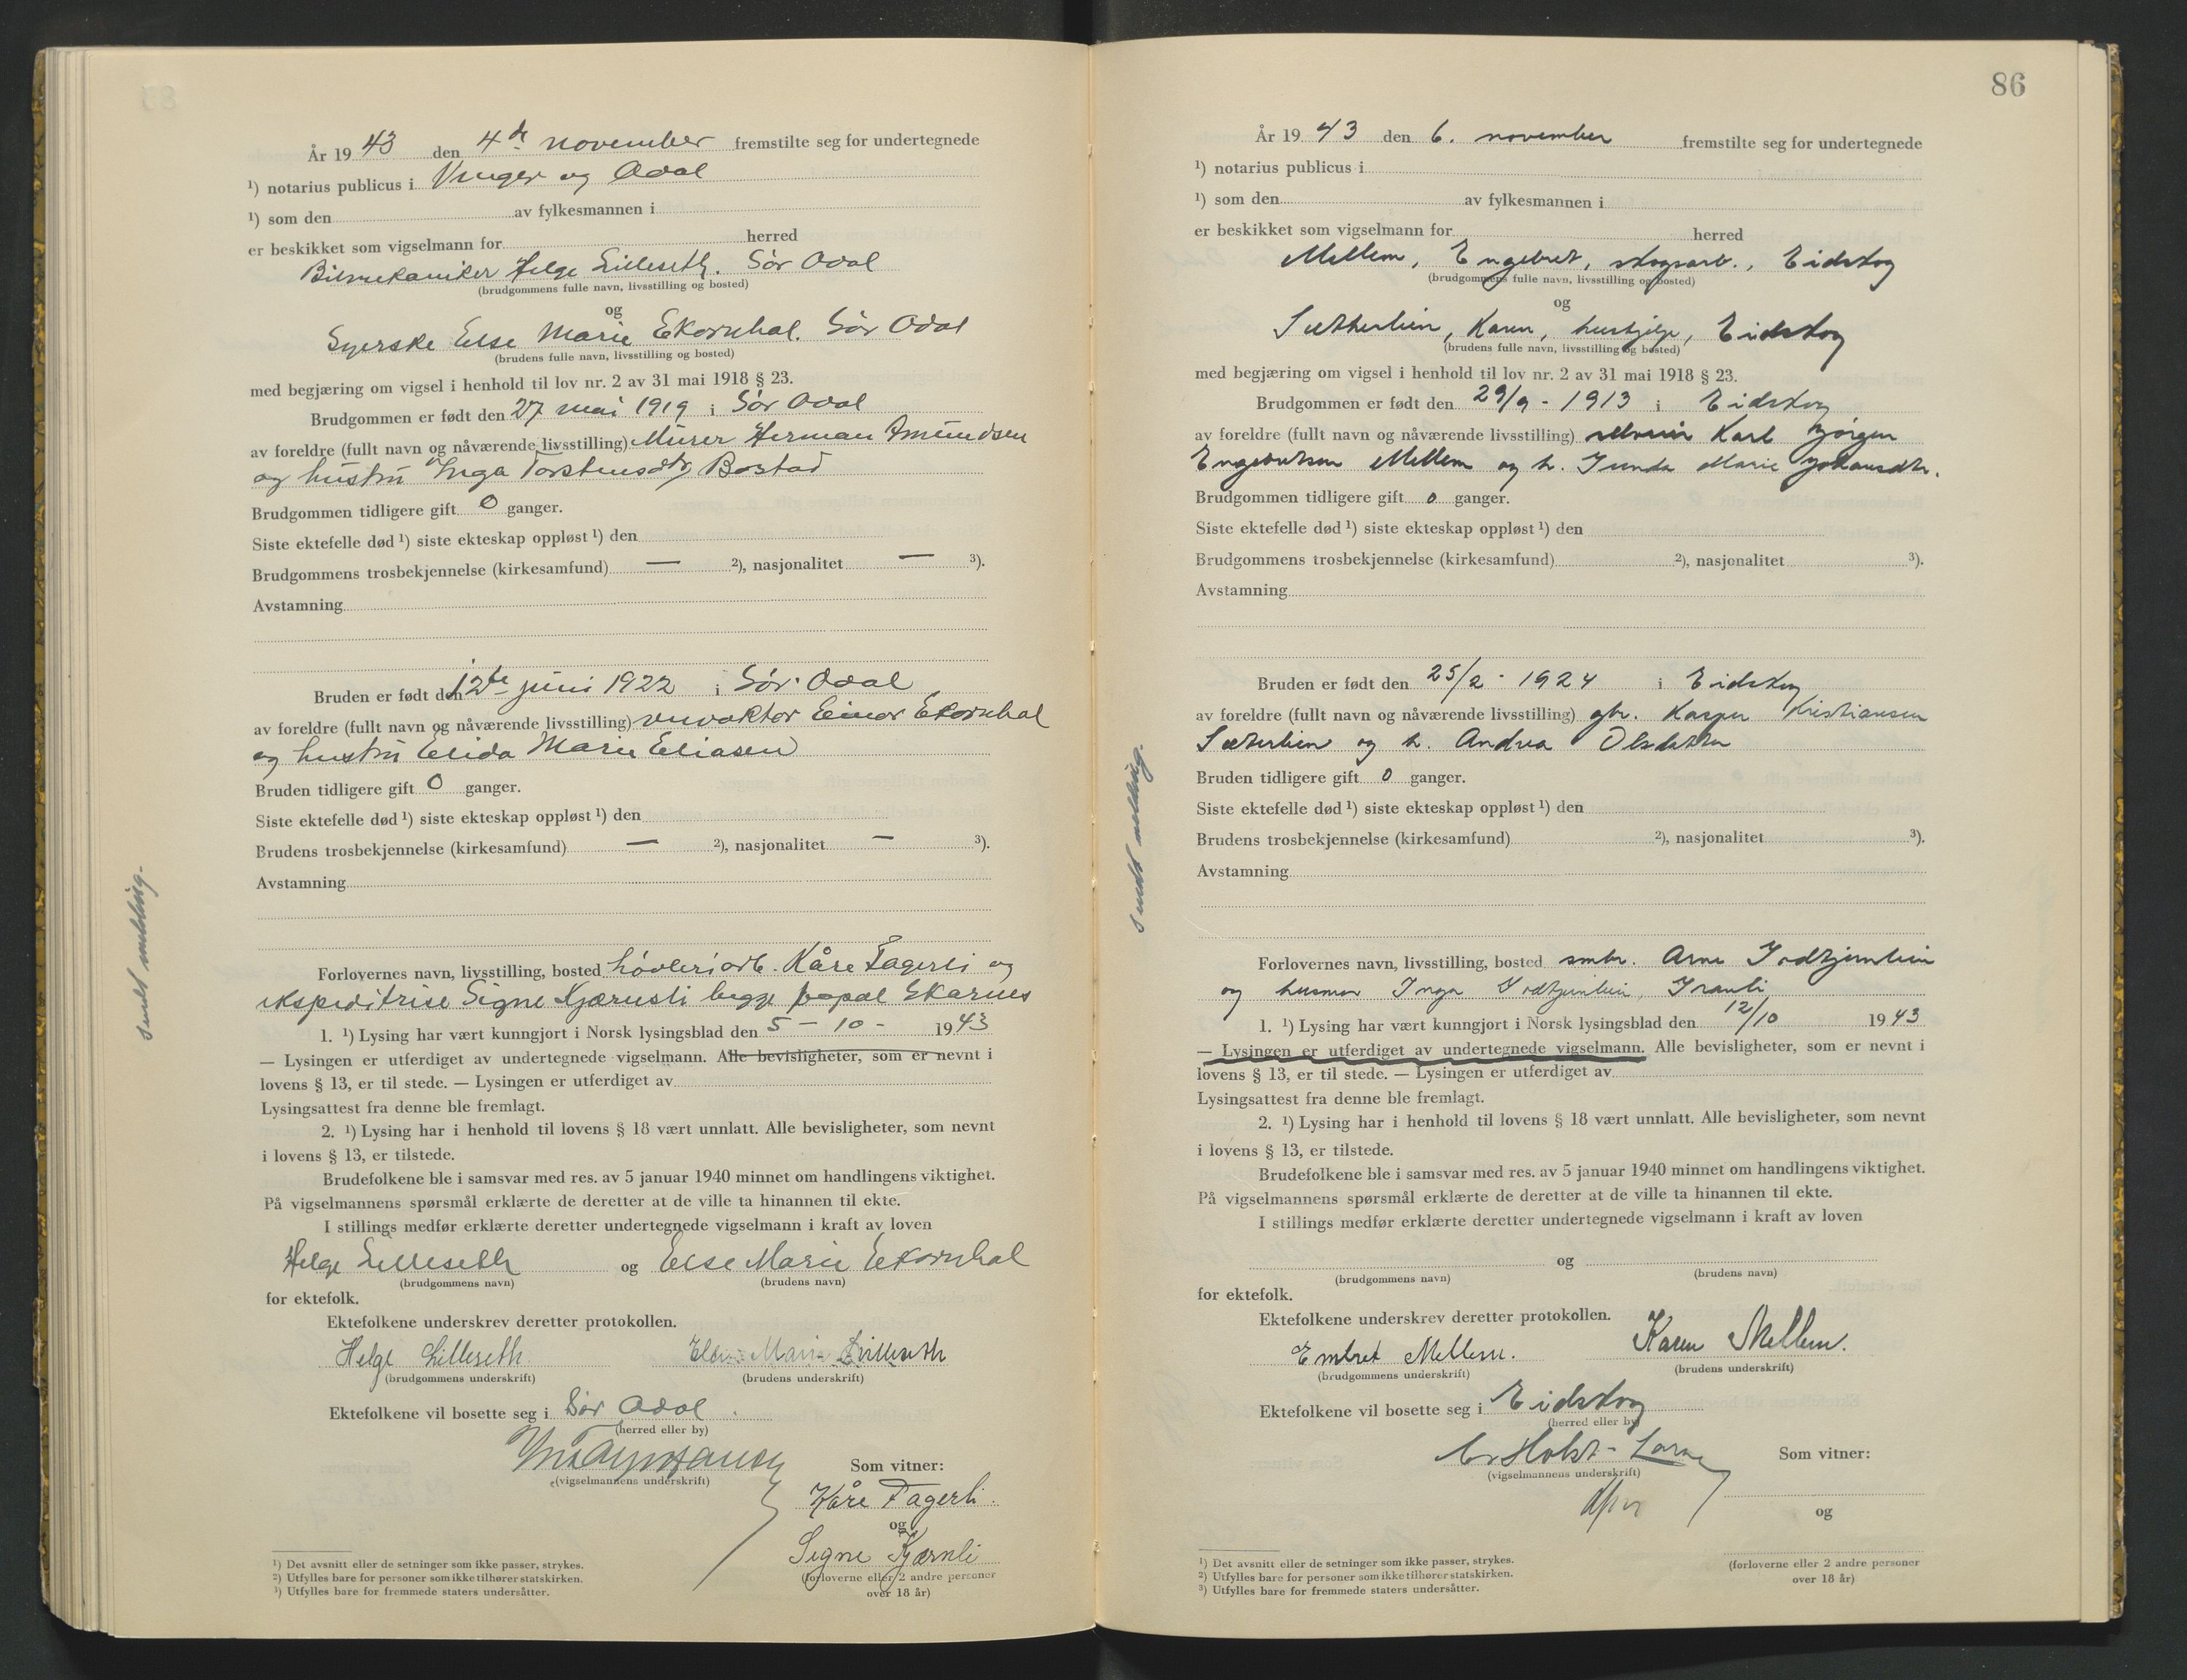 År 1943 den 4de november fremstilte seg for undertegnede
¹) notarius publicus i Vinger og Odal
¹) som den av fylkesmannen i
er beskikket som vigselmann for herred
Bilmekaniker Helge Lilleseth. Sør Odal
(brudgommens fulle navn, livsstilling og bosted)
og
Syerske Else Marie Ekornhol. Sør Odal
(brudens fulle navn, livsstilling og bosted)
med begjæring om vigsel i henhold til lov nr. 2 av 31 mai 1918 § 23.
Brudgommen er født den 27 mai 1919 i Sør Odal
av foreldre (fullt navn og nåværende livsstilling) Murer Herman Amundsen
og hustru Inga Torstensdtr Bostad
Brudgommen tidligere gift 0 ganger.
Siste ektefelle død ¹) siste ekteskap oppløst ¹) den
Brudgommens trosbekjennelse (kirkesamfund) — ²), nasjonalitet — ³).
Avstamning
Bruden er født den 12te juni 1922 i Sør Odal
av foreldre (fullt navn og nåværende livsstilling) Einar Ekornhol
og hustru Elida Marie Eliasen
Bruden tidligere gift 0 ganger.
Siste ektefelle død ¹) siste ekteskap oppløst ¹) den
Brudens trosbekjennelse (kirkesamfund) — ²), nasjonalitet — ³).
Avstamning
Forlovernes navn, livsstilling, bosted høvleriarb. Kåre Fagerli og
ekspeditrise Signe Kjærnsli begge Skarnes
1. ¹) Lysing har vært kunngjort i Norsk lysingsblad den 5 - 10 - 1943
— Lysingen er utferdiget av undertegnede vigselmann. Alle bevisligheter, som er nevnt i
lovens § 13, er til stede. — Lysingen er utferdiget av
Lysingsattest fra denne ble fremlagt.
2. ¹) Lysing har i henhold til lovens § 18 vært unnlatt. Alle bevisligheter, som nevnt
i lovens § 13, er tilstede.
Brudefolkene ble i samsvar med res. av 5 januar 1940 minnet om handlingens viktighet.
På vigselmannens spørsmål erklærte de deretter at de ville ta hinannen til ekte.
I stillings medfør erklærte deretter undertegnede vigselmann i kraft av loven
Helge Lilleseth og Else Marie Ekornhol
(brudgommens navn) (brudens navn)
for ektefolk.
Ektefolkene underskrev deretter protokollen.
Helge Lilleseth Else Marie Lilleseth
(brudgommens underskrift) (brudens underskrift)
Ektefolkene vil bosette seg i Sør Odal.
(herred eller by)
(vigselmannens underskrift)
Som vitner:
Kåre Fagerli.
og
Signe Kjærnsli
(forloverne eller 2 andre personer
over 18 år)
¹) Det avsnitt eller de setninger som ikke passer, strykes.
²) Utfylles bare for personer som ikke tilhører statskirken.
³) Utfylles bare for fremmede staters undersåtter.
sendt melding.
86
År 1943 den 6. november fremstilte seg for undertegnede
¹) notarius publicus i
¹) som den av fylkesmannen i
er beskikket som vigselmann for herred
Mellem, Engebret, skogsarb., Eidskog
(brudgommens fulle navn, livsstilling og bosted)
og
Sætherlien, Karen, hushjelp, Eidskog
(brudens fulle navn, livsstilling og bosted)
med begjæring om vigsel i henhold til lov nr. 2 av 31 mai 1918 § 23.
Brudgommen er født den 29/9 - 1913 i Eidskog
av foreldre (fullt navn og nåværende livsstilling) Karl Jørgen
Engebretsen Mellem og h. Gunda Marie Johansdtr.
Brudgommen tidligere gift 0 ganger.
Siste ektefelle død ¹) siste ekteskap oppløst ¹) den
Brudgommens trosbekjennelse (kirkesamfund) ²), nasjonalitet ³).
Avstamning
Bruden er født den 25/2 - 1924 i Eidskog
av foreldre (fullt navn og nåværende livsstilling) gbr. Kasper Kristiansen
Sæterlien og h. Andrea Olsdatter
Bruden tidligere gift 0 ganger.
Siste ektefelle død ¹) siste ekteskap oppløst ¹) den
Brudens trosbekjennelse (kirkesamfund) ²), nasjonalitet ³).
Avstamning
Forlovernes navn, livsstilling, bosted smbr. Arne
og husmor Inga
1. ¹) Lysing har vært kunngjort i Norsk lysingsblad den 12/10 1943
— Lysingen er utferdiget av undertegnede vigselmann. Alle bevisligheter, som er nevnt i
lovens § 13, er til stede. — Lysingen er utferdiget av
Lysingsattest fra denne ble fremlagt.
2. ¹) Lysing har i henhold til lovens § 18 vært unnlatt. Alle bevisligheter, som nevnt
i lovens § 13, er tilstede.
Brudefolkene ble i samsvar med res. av 5 januar 1940 minnet om handlingens viktighet.
På vigselmannens spørsmål erklærte de deretter at de ville ta hinannen til ekte.
I stillings medfør erklærte deretter undertegnede vigselmann i kraft av loven
og
(brudgommens navn) (brudens navn)
for ektefolk.
Ektefolkene underskrev deretter protokollen.
Embret Mellem. Karen Mellem.
(brudgommens underskrift) (brudens underskrift)
Ektefolkene vil bosette seg i Eidskog
(herred eller by)
Holst-
(vigselmannens underskrift)
Som vitner:
og
(forloverne eller 2 andre personer
over 18 år)
¹) Det avsnitt eller de setninger som ikke passer, strykes.
²) Utfylles bare for personer som ikke tilhører statskirken.
³) Utfylles bare for fremmede staters undersåtter.
sendt melding.